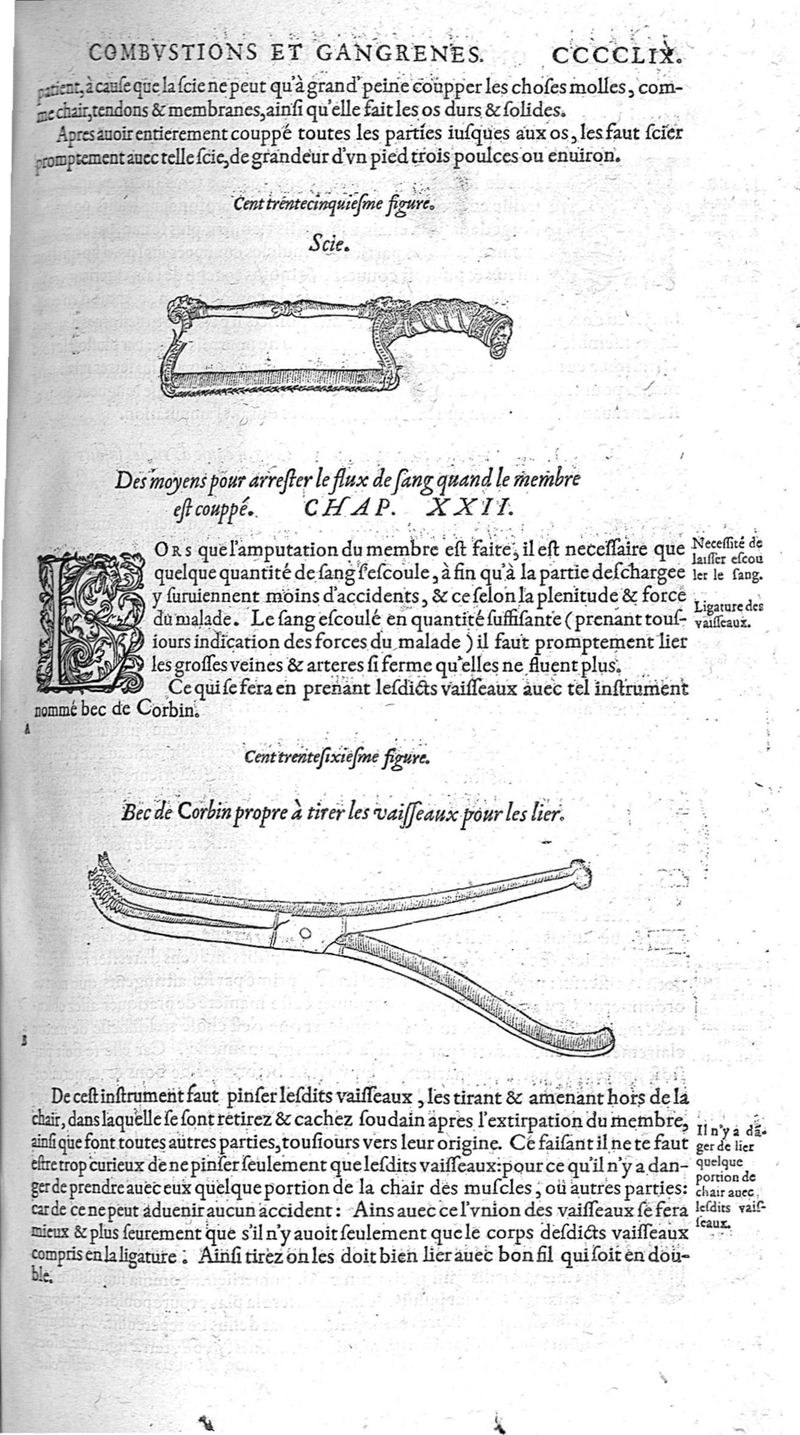 COMBVSTIONS ET GANGRENES. CCCCLIX.
patient, à cauſe que la ſcie ne peut qu'à grand' peine coupper les choſes molles, com-
me chair, tendons & membranes, ainſi qu'elle fait les os durs & ſolides.
Apres auoir entierement couppé toutes les parties iuſques aux os, les faut ſcier
promptement auec telle ſcie, de grandeur d'vn pied trois poulces ou enuiron.
Cent trentecinquieſme figure.
Scie.
Des moyens pour arreſter le flux de ſang quand le membre
eſt couppé. CHAP. XXII.
LORS que l'amputation du membre eſt faite, il eſt neceſſaire que
quelque quantité de ſang ſ'eſcoule, à fin qu'à la partie deſchargee
y ſuruiennent moins d'accidents, & ce ſelon la plenitude & force
du malade. Le ſang eſcoulé en quantité ſuffiſante (prenant touſ-
iours indication des forces du malade) il faut promptement lier
les groſſes veines & arteres ſi ferme qu'elles ne fluent plus.
Ce qui ſe fera en prenant leſdicts vaiſſeaux auec tel inſtrument
nommé bec de Corbin.
Neceſſité de
laiſſer eſcou
ler le ſang.
Ligature des
vaiſſeaux.
A
Cent trenteſixieſme figure.
Bec de Corbin propre à tirer les vaiſſeaux pour les lier.
B
De ceſt inſtrument faut pinſer leſdits vaiſſeaux, les tirant & amenant hors de la
chair, dans laquelle ſe ſont retirez & cachez ſoudain après l'extirpation du membre,
ainſi que font toutes autres parties, touſiours vers leur origine. Ce faiſant il ne te faut
eſtre trop curieux de ne pinſer ſeulement que leſdits vaiſſeaux: pour ce qu'il n'y a dan-
ger de prendre auec eux quelque portion de la chair des muſcles, où autres parties:
car de ce ne peut aduenir aucun accident: Ains auec ce l'vnion des vaiſſeaux ſe fera
mieux & plus ſeurement que s'il n'y auoit ſeulement que le corps deſdicts vaiſſeaux
compris en la ligature. Ainſi tirez on les doit bien lier auec bon fil qui ſoit en dou-
ble.
Il n'y a dā-
ger de lier
quelque
portion de
chair auec
leſdits vaiſ-
ſeaux.